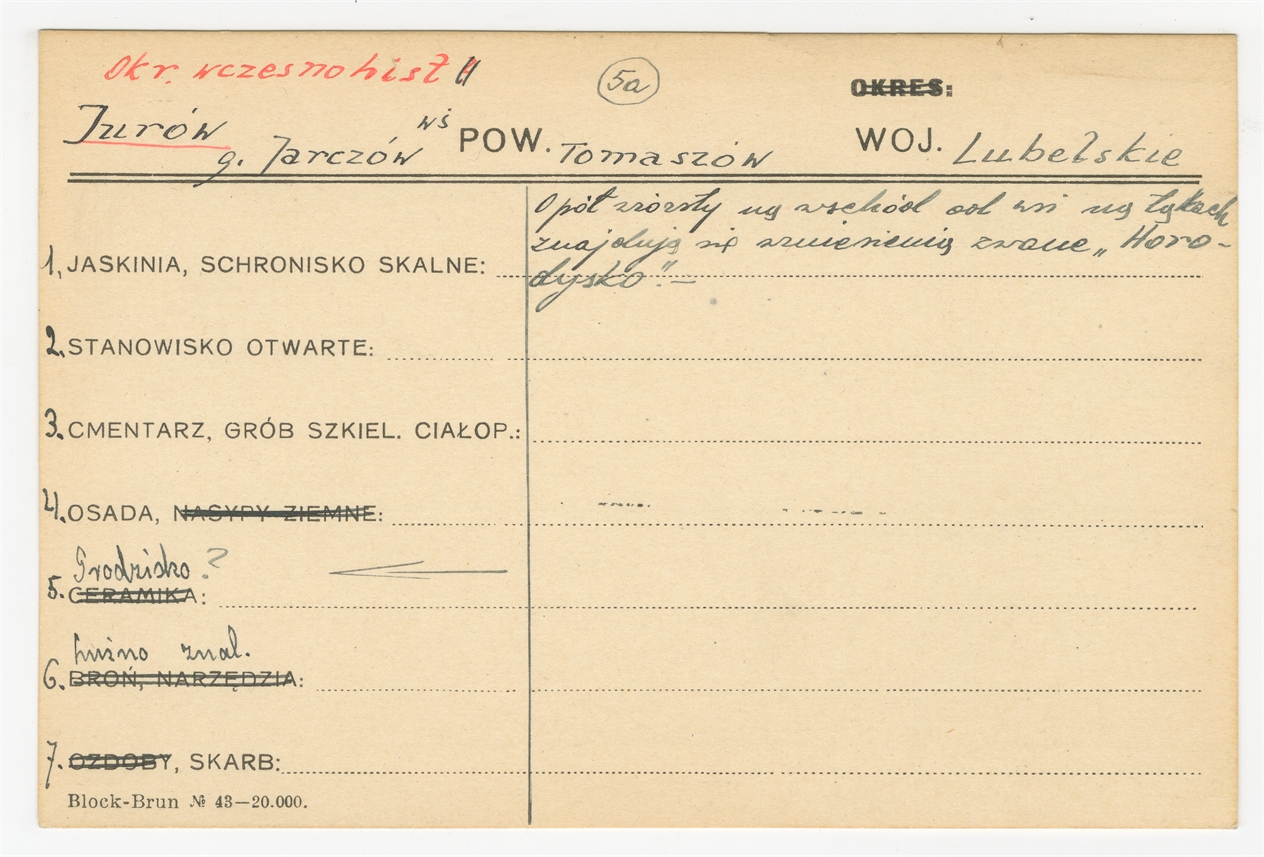 Okr. wczesnohist II
5a
OKRES:
Jurów
g. Jarczów wś POW. Tomaszów WOJ. Lubelskie
O pół wiorsty na wschód od wsi na łąkach
znajdują się wzniesienia zwane „Horo-
dysko".—
1, JASKINIA, SCHRONISKO SKALNE:
2. STANOWISKO OTWARTE:
3. CMENTARZ, GRÓB SZKIEL. CIAŁOP.:
4. OSADA, NASYPY ZIEMNE:
Grodzisko ?
5. CERAMIKA:
luźno znal.
6. BROŃ, NARZĘDZIA:
7. OZDOBY, SKARB:
Block-Brun № 43—20.000.